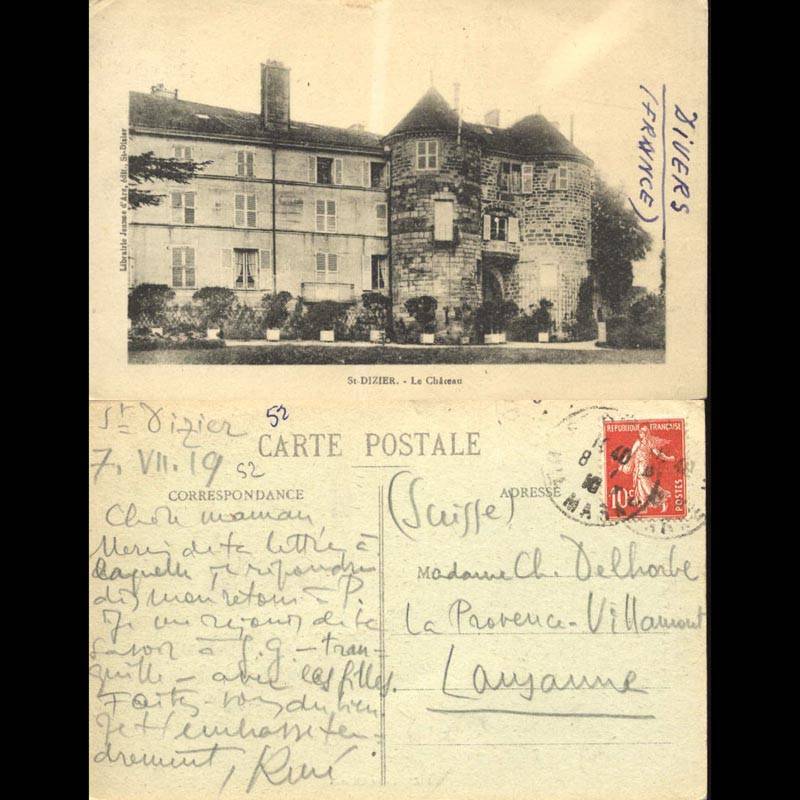 Librairie Jeanne d'Arc, édit., St-Dizier
DIVERS
(FRANCE)
St-DIZIER. - Le Château
St Dizier
52
7. VII. 19
52
CARTE POSTALE
CORRESPONDANCE
ADRESSE
REPUBLIQUE FRANÇAISE
10c
POSTES
MARNE
Chère maman,
Merci de ta lettre, à
laquelle je répondrai
dès mon retour à P.
Je me réjouis de te
savoir à G.G - tran-
quille - avec les filles.
Faites-vous du bien
Je t'embrasse ten-
drement, René
(Suisse)
Madame Ch. Delhorbe
La Provence-Villamont
Lausanne